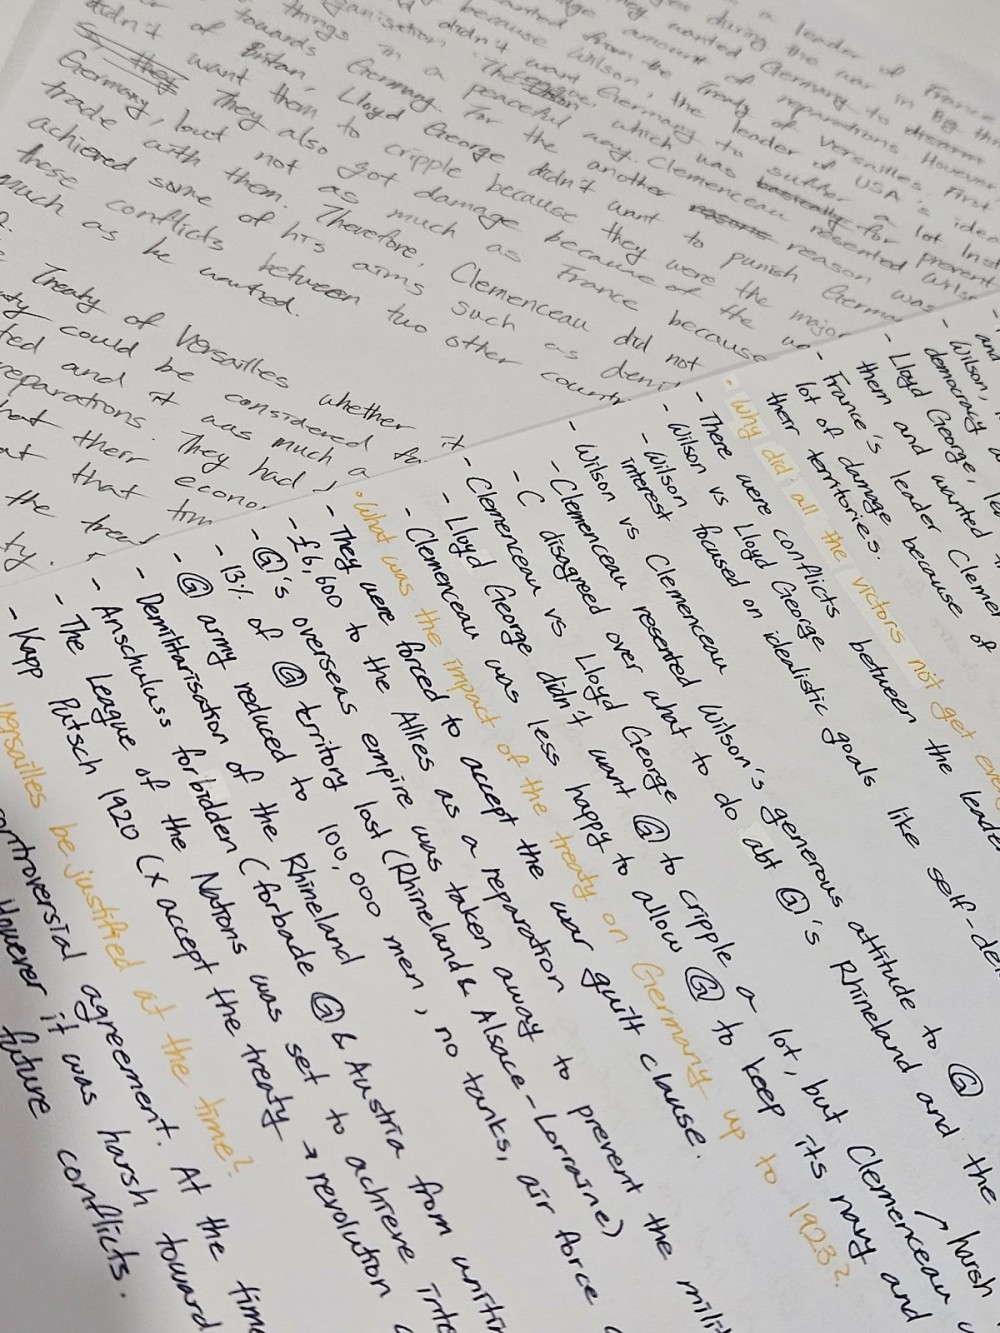 a leader of France
during the war in Big thr
they wanted Germany to disarm
amount of reparations. However
from the Treaty of Versailles. First
because Wilson, the leader of USA's idea
didn't want Germany to suffer a lot. Inst
organisation. The which was basically for prevent
things in a peaceful way. Clemenceau resented Wilso
towards Germany. For the another reasons reason was
of Britain, Lloyd George didn't want to punish German
didn't want them to cripple because they were the major
they They also got damage because of the
Germany, but not as much as France because
trade with them. Therefore, Clemenceau did not
achieved some of his aims such as demi
these conflicts between two other countr
much as he wanted.
Treaty of Versailles whether it
could be considered fa
and it was much a
reparations. They had
that their econo
at that tim
the trea
ty.
and
Wilson,
democracy
Lloyd George,
them and wanted
- France's leader Clemen
lot of damage because of
their territories.
• Why did all the victors not get eve
- There were conflicts between the leade
- Wilson vs Lloyd George
- Wilson focused on idealistic goals like self-de
interest
- Wilson vs Clemenceau
- Clemenceau resented Wilson's generous attitude to Ⓖ
- C disagreed over what to do abt Ⓖ's Rhineland and the
- Clemenceau vs Lloyd George
- Lloyd George didn't want Ⓖ to cripple a lot, but Clemenceau
↗ harsh
- Clemenceau was less happy to allow Ⓖ to keep its navy and
• What was the impact of the treaty on Germany up to 1923?
- They were forced to accept the war guilt clause.
- £6,600 to the Allies as a reparation
- Ⓖ's overseas empire was taken away to prevent the milit
- 13% of Ⓖ territory lost (Rhineland & Alsace-Lorraine)
- Ⓖ army reduced to 100,000 men, no tanks, air force
- Demilitarisation of the Rhineland
- Anschuluss forbidden (forbade Ⓖ & Austria from unitin
- The League of the Nations was set to achieve inte
- Kapp Putsch 1920 (x accept the treaty → revolution
Versailles be justified at the time?
controversial agreement. At the time
However it was harsh toward
future conflicts.